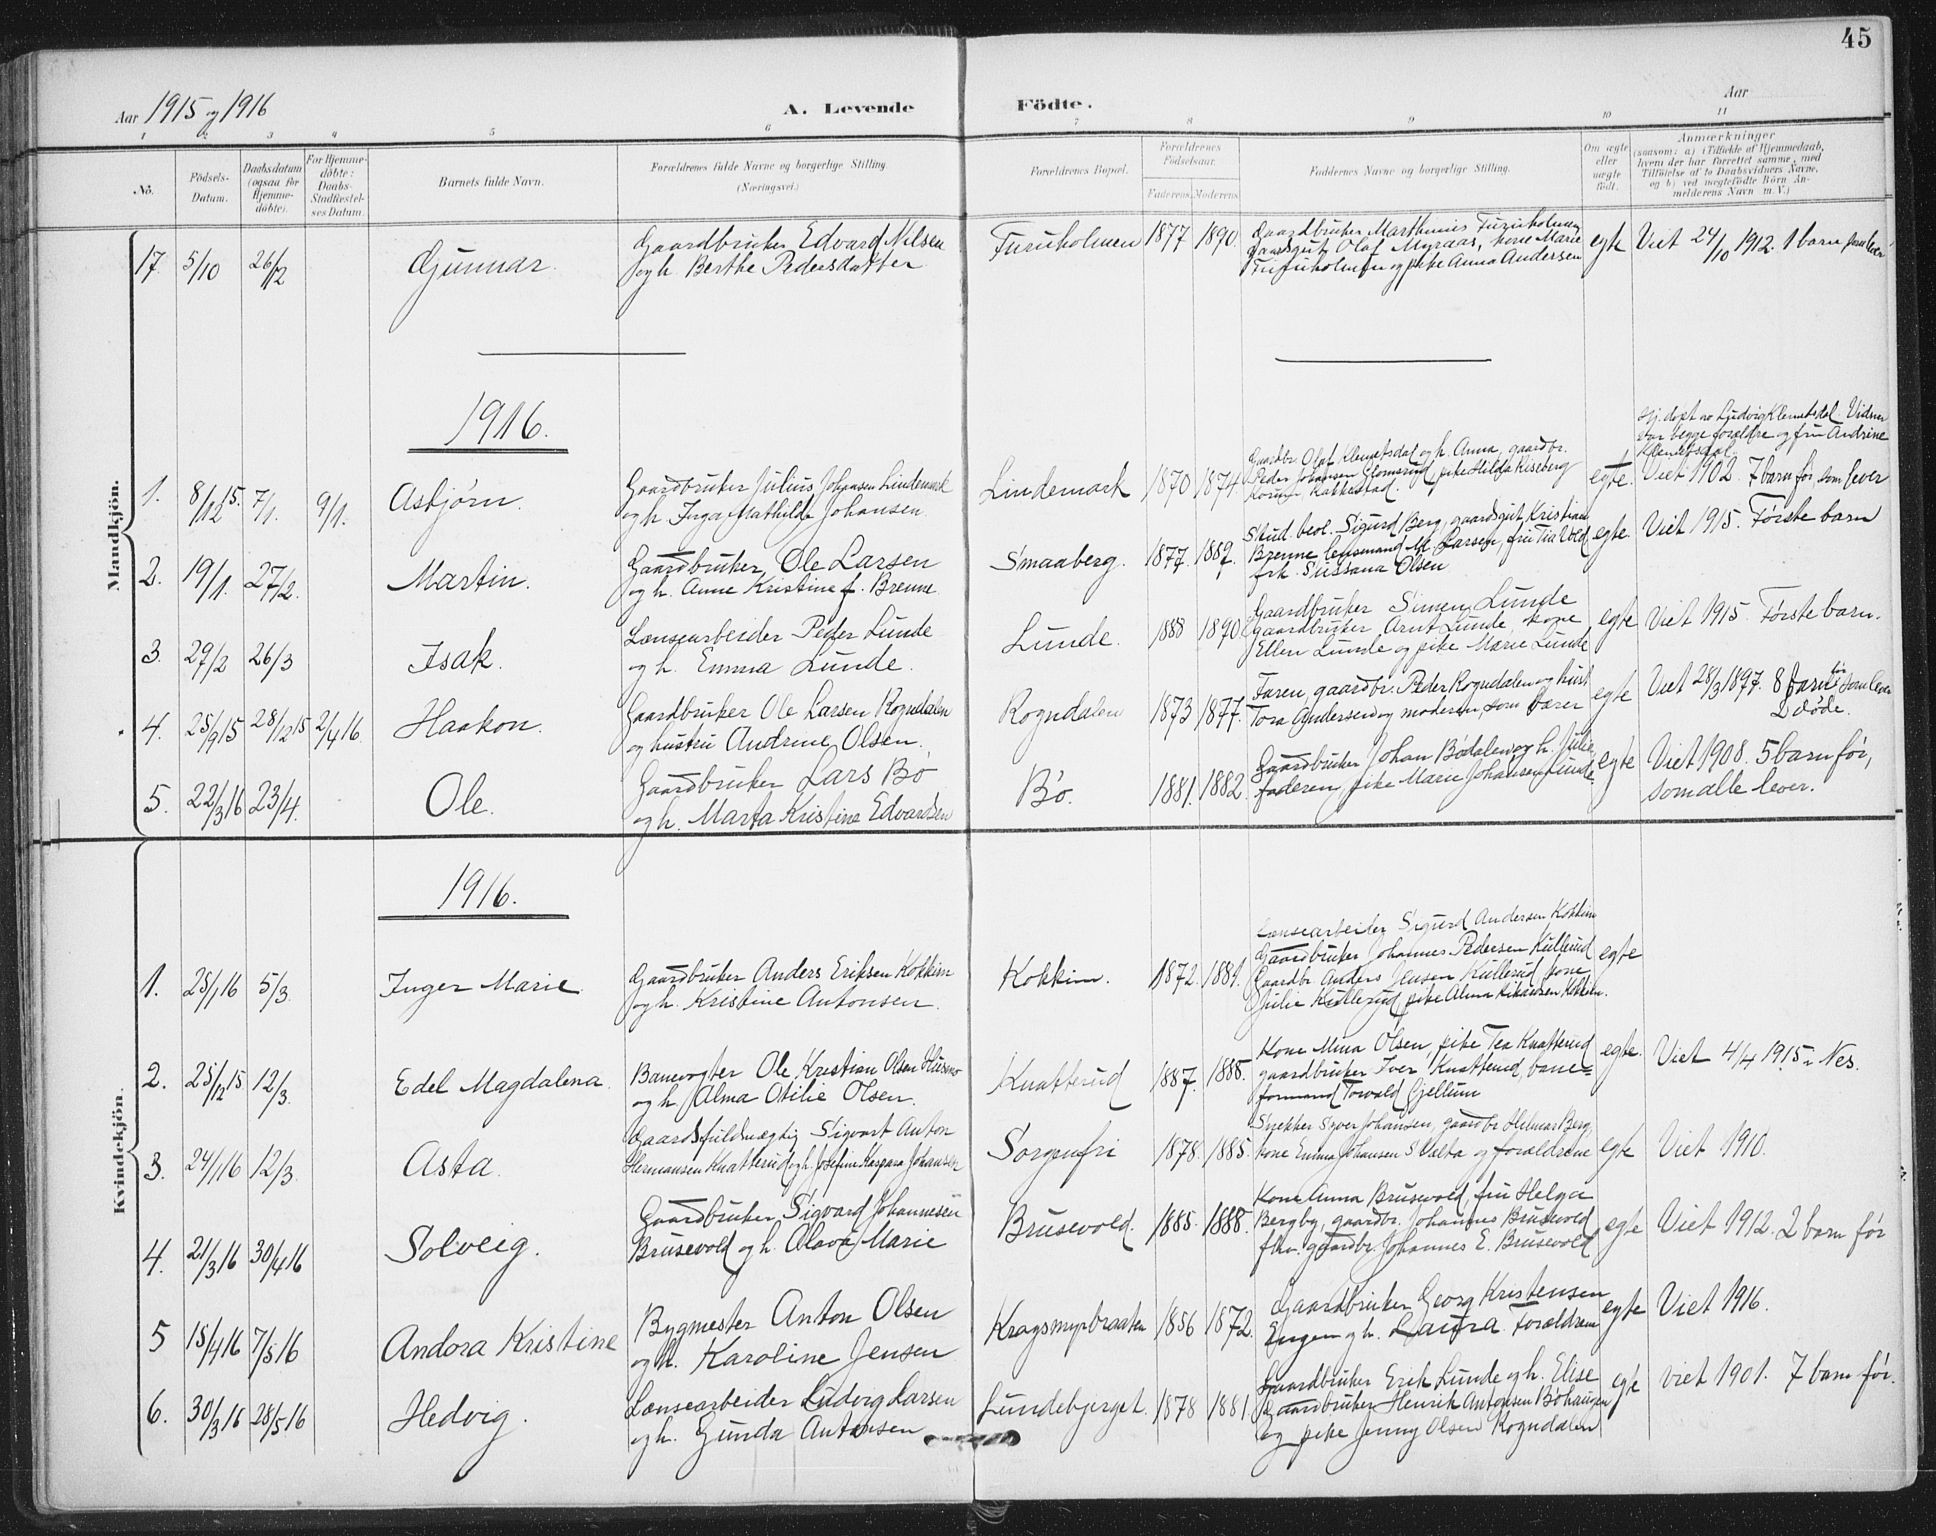 45
Aar 1915 og 1916
A. Levende Födte.
Aar
1 2 3 4 5 6 7 8 9 10 11
No.
Födsels-Datum.
Daabsdatum (ogsaa for Hjemme-döbte).
For Hjemme-döbte: Daabs-Stadfæstel-ses Datum.
Barnets fulde Navn.
Forældrenes fulde Navne og borgerlige Stilling.
(Næringsvei.)
Forældrenes Bopæl.
Forældrenes Födselsaar.
Faderens. Moderens.
Faddernes Navne og borgerlige Stilling.
Om ægte eller uægte födt.
Anmærkninger
(saasom: a) i Tilfælde af Hjemmedaab,
hvem der har forrettet samme, med
Tilföielse af to Daabsvidners Navne,
og b) ved uægtefödte Börn An-
melderens Navn m. V.)
Mandkjön.
17. 5/10 26/12 Gunnar.
Gaardbruker Edvard Nilsen
og h. Berthe Pedersdatter
Furuholmen 1877 1890.
Gaardbruker Marthinius Furuholmen
gaardsgut Olaf Myraas, kone Marie
Furuholmen og pike Anna Andersen
egte Viet 24/10 1912. 1 barn før
1916.
1. 8/12 15. 7/1. 9/1. Asbjørn.
Gaardbruker Julius Johansen Lindemark
og h. Inga Mathilde Johansen.
Lindemark 1870 1874
Gaardbr. Olaf Klemetsdal og h. Anna, gaardbr.
Peder Johansen Glomsrud, pike Hilda Riseberg
Kakkestad.
egte.
Hj. døpt av Ludvig Klemetsdal. Vidner
var begge forældre og fru Andrine
Klemetsdal.
Viet 1902. 7 barn før som lever
2. 19/1. 27/2. Martin.
Gaardbruker Ole Larsen
og h. Anne Kristine f. Brenne
Smaaberg. 1877. 1882.
Stud. Sigurd Berg, gaardsgut Kristian
Brenne lensmand M. Larsen, fru Tia Vold
frk. Sussana Olsen
egte. Viet 1915. Første barn
3. 29/2 26/3 Isak.
Lænsearbeider Peder Lunde
og h. Emma Lunde.
Lunde. 1888 1890
Gaardbruker Simen Lunde
gaardbruker Arnt Lunde, kone
Ellen Lunde og pike Marie Lunde
egte Viet 1915. Første barn.
4. 25/9 15 28/12 15 2/4 16. Haakon.
Gaardbruker Ole Larsen Rogndalen
og hustru Andrine Olsen.
Rogndalen 1873 1877.
Faren, gaardbr. Peder Rogndalen og hust
Tora Andersen og moderen, som bærer
egte Viet 28/3 1897. 8 barn før som lever
2 døde.
5. 22/3 16 23/4. Ole.
Gaardbruker Lars Bø
og h. Marta Kristine Edvardsen
Bø. 1881. 1882
Gaardbruker Johan Bødalen og h. Julie,
faderen, pike Marie Johansen Lunde
egte Viet 1908. 5 barn før,
som alle lever.
Kvindekjön.
1916.
1. 25/1 16 5/3 Inger Marie
Gaardbruker Anders Eriksen Kokkim
og h. Kristine Antonsen.
Kokkim. 1872. 1881.
Lænsearbeider Sigurd Andersen Kokkim
Gaardbruker Johannes Pedersen Kullerud
Gaardbr. Anders Jensen Kullerud, kone
Julie Kullerud, pike Alma Kokkim.
egte
2. 25/12 15 12/3. Edel Magdalena.
Banevogter Ole Kristian Olsen Husmo
og h. Alma Otilie Olsen.
Knatterud 1887. 1888.
Kone Mina Olsen, pike Tea Knatterud
gaardbruker Iver Knatterud, bane-
formand Torvald Gjellum
egte. Viet 4/4 1915 i Nes.
3. 24/1 16 12/3. Asta.
Gaardsfuldmægtig Sigvart Anton
Hermansen Knatterud og h. Josefine Kaspara Johansen
Sorgenfri 1878. 1885.
Snekker Syver Johansen, gaardbr. Hilmar Berg,
kone Emma Johansen og forældrene
egte Viet 1910.
4. 21/3 16 30/4 16 Solveig.
Gaardbruker Sigvard Johannesen
Brusevold og h. Olava Marie
Brusevold. 1885. 1888.
Kone Anna Brusevold, fru Helga
Bergby, gaardbr. Johannes Brusevold
fhv. gaardbr. Johannes E. Brusevold
egte Viet 1912. 2 barn før
5 15/4 16 7/5 16 Andora Kristine
Bygmester Anton Olsen
og h. Karoline Jensen
Kragsmyrbraaten 1856 1872.
Gaardbruker Georg Kristensen
Engen og h. Laura. Forældrene
egte Viet 1916.
6. 30/3 16 28/5 16 Hedvig.
Lænsearbeider Ludvig Larsen
og h. Gunda Antonsen
Lundebjerget. 1878 1881.
Gaardbruker Erik Lunde og h. Elise
Gaardbruker Henrik Antonsen Bøhaugen
og pike Jenny Olsen Rogndalen
egte viet 1901. 7 barn før.